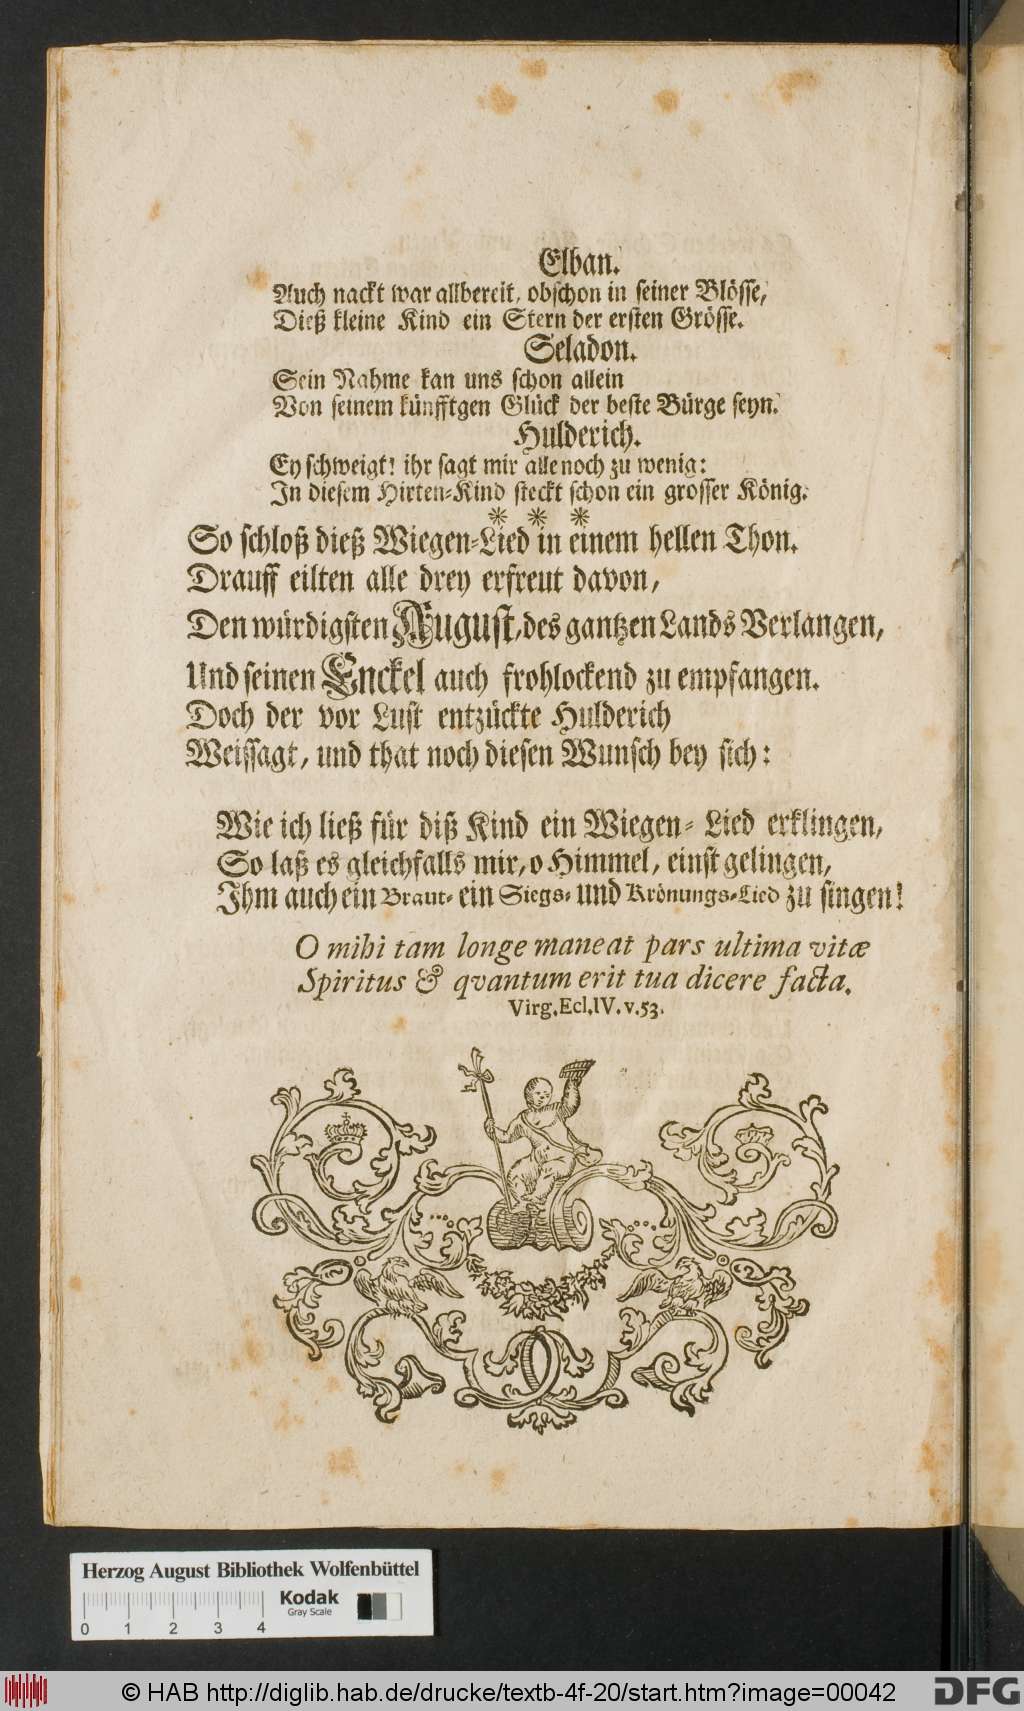 Elban.
Auch nackt war allbereit, obschon in seiner Blösse,
Dieß kleine Kind ein Stern der ersten Grösse.
Seladon.
Sein Nahme kan uns schon allein
Von seinem künfftgen Glück der beste Bürge seyn.
Hulderich.
Ey schweigt! ihr sagt mir alle noch zu wenig:
In diesem Hirten-Kind steckt schon ein grosser König.
* * *
So schloß dieß Wiegen-Lied in einem hellen Thon.
Drauff eilten alle drey erfreut davon,
Den würdigsten August, des gantzen Lands Verlangen,
Und seinen Enckel auch frohlockend zu empfangen.
Doch der vor Lust entzückte Hulderich
Weissagt, und that noch diesen Wunsch bey sich:
Wie ich ließ für diß Kind ein Wiegen-Lied erklingen,
So laß es gleichfalls mir, o Himmel, einst gelingen,
Ihm auch ein Braut- ein Siegs- und Krönungs-Lied zu singen!
O mihi tam longe maneat pars ultima vitæ
Spiritus & qvantum erit tua dicere facta.
Virg. Ecl. IV. v. 53.
Herzog August Bibliothek Wolfenbüttel
Kodak
Gray Scale
0 1 2 3 4
© HAB http://diglib.hab.de/drucke/textb-4f-20/start.htm?image=00042
DFG